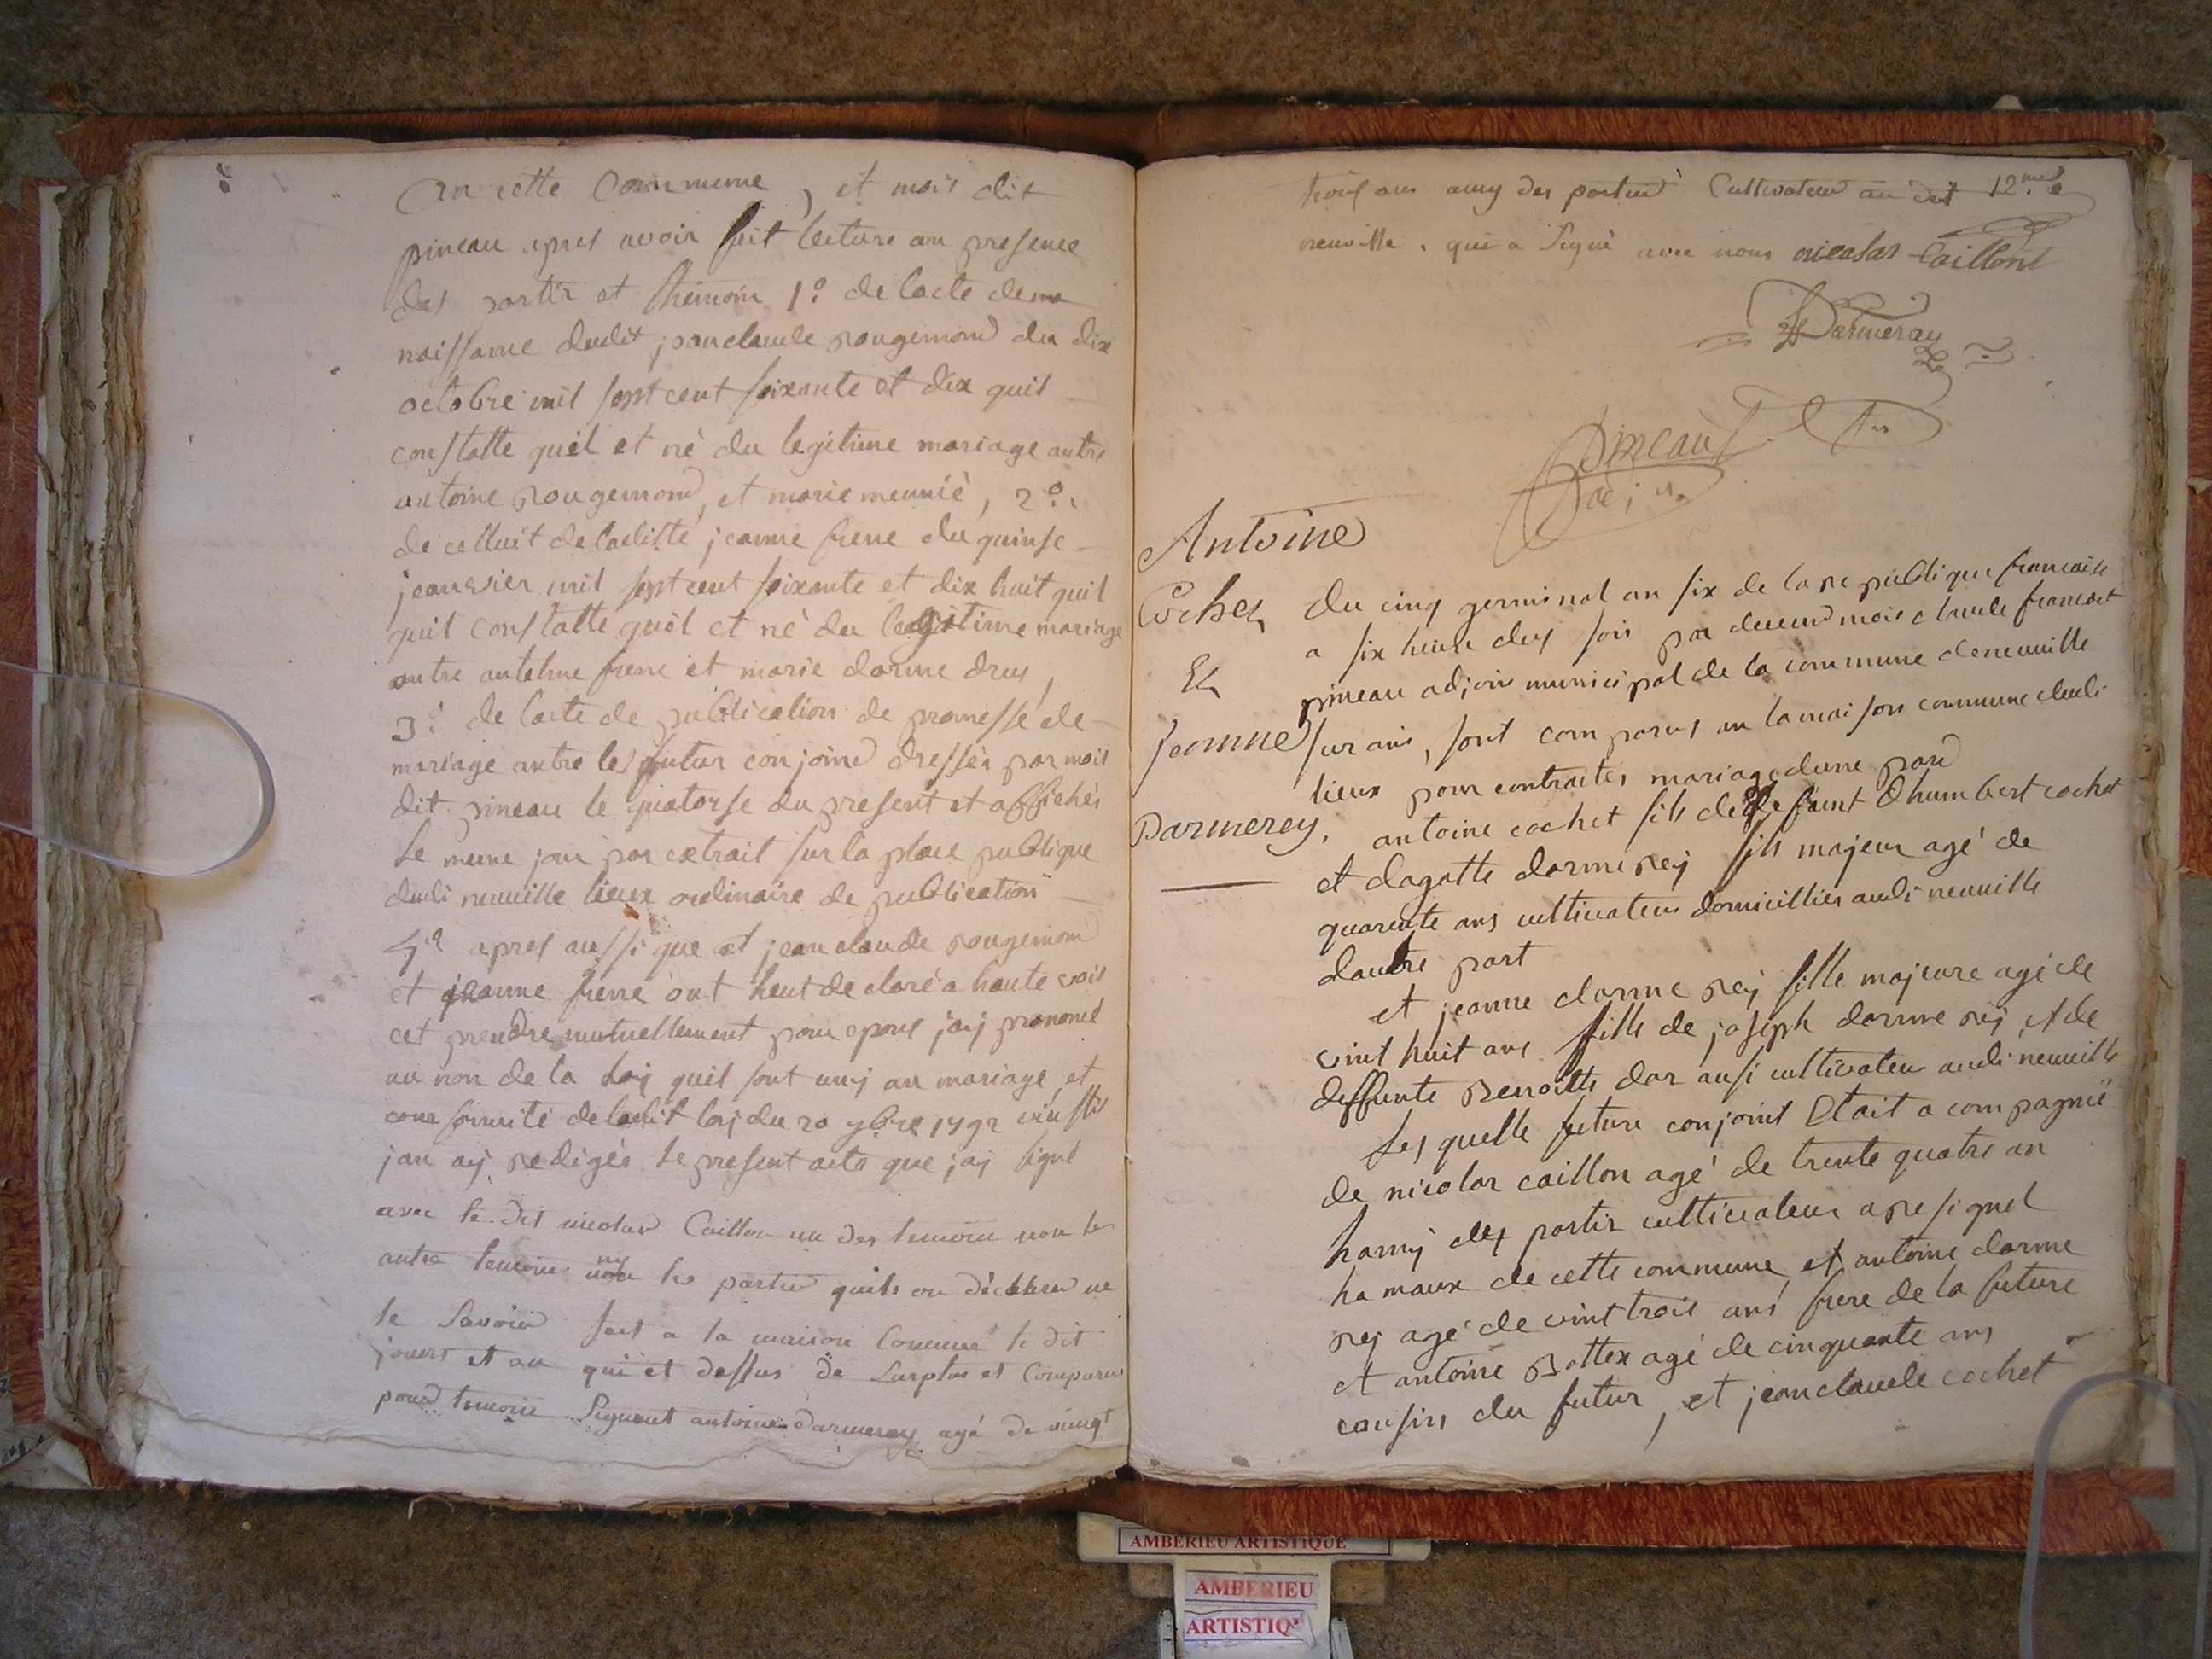 En cette Commune, et mois dit
pineau apres avoir fait lecture an presence
des partis et themoin 1° de lacte de
naissance dudit jean claude rougemond du dix
octobre mil sept cent soixante et dix quil
constatte quil et né du legitime mariage antre
antoine rougemond, et marie meunié, 2°.
de celluit de laditte jeanne frene du quinse
jeanvier mil sept cent soixante et dix huit quil
quil constatte quil et né du legitime mariage
antre antelme frene et marie darme drus,
3° de lacte de publication de promesse de
mariage antre les futur conjoind dressés par mois
dit pineau le quatorse du present et affichés
le meme jour par extrait sur la place publique
dudi neuville lieux ordinaire de publication
4° apres aussi que et jean claude rougemond
et jeanne frene ont heut declaré a haute vois
cet prendre mutuellement pour epous jaij prononcé
au non de la loij quil sont unij an mariage et
conformité deladit loij du 20 7bre 1792
jan aij redigés le present acte que jaij signé
avec le dit nicolas Caillon un des temoin non le
autre temoin ny les partie quils on déclaré ne
le Savoir fait a la maison Commune le dit
jours et an qui et dessus de Surplus et Comparus
pour temoin Signant antoine Darmerey agé de vingt
trois ans amy des parties Cultivateur au dit 12me
neuville. qui a Signé avec nous nicolas Caillond
Darmeray
Pineau
adj
Antoine
Cochet
Et
Jeanne
Darmerey.
du cinq germinal an six de la republique francaise
a six heure dus soir par devend mois claude francoit
pineau adjoin municipal de la commune deneuville
sur ain, sont comparus an la maison commune dudi
lieux pour contractes mariage dune pard
antoine cochet fils de defeunt Dhumbert cochet
et dagatte darme reij fils majeur agé de
quarente ans cultivateur domicilliés audi neuville
dautre part
et jeanne darme reij fille majeure agé de
vint huit ans fille de joseph darme reij et de
deffunte Benoitte dar ausi cultivateur audi neuville
Les quelle futur conjoint Etait a compagnié
de nicolas caillon agé de trente quatre an
hamij des partis cultivateur a resignel
hamaux de cette commune et antoine darme
reij agé de vint trois ans frere de la future
et antoine Bottex agé de cinquante ans
cousins du futur, et jean claude cochet
AMBERIEU ARTISTIQUE
AMBERIEU
ARTISTIQ